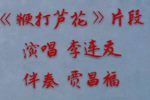 《鞭打芦花》片段
演唱 李连友
伴奏 贾昌福